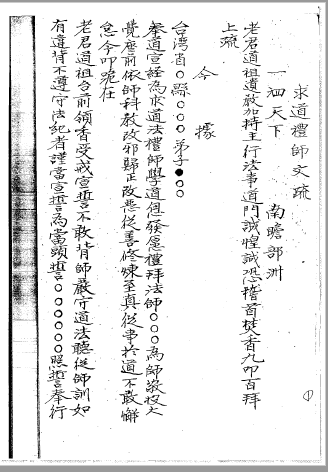 求道禮師文疏
一泗天下 南贍部洲
老君道祖遺教加持主行法事道門誠惶誠恐稽首焚香九叩百拜
上疏
今據
台湾省○縣○○○弟子●○○
奉道宣經為求道法禮師學道俱發愿禮拜法師○○○為師敬投大
覺麼前依師科教改邪歸正改悪從善修煉至真從事於道不敢懈
怠今叩跪在
老君道祖台前領香受戒宣誓不敢背師嚴守道法聽從師訓如
有違背不遵守法紀者謹當宣誓為當頭誓○○○○○照誓奉行
①